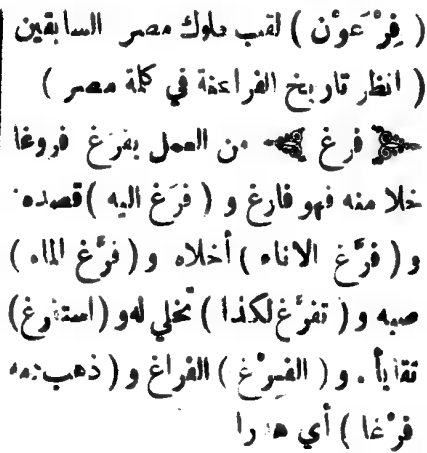 ( فِرْعَوْن ) لقب ملوك مصر السابقين
( انظر تاريخ الفراعنة في كلة مصر )
فرغ من العمل يفرَغ فروغا
خلا منه فهو فارغ و ( فرَغ اليه ) قصده
و ( فرَّغ الاناء ) أخلاه و ( فرَّغ الماء )
صبه و ( تفرَّغ لكذا ) تخلي له و ( استفرغ )
تقايأ . و ( الفِرْغ ) الفراغ و ( ذهب دمه
فرْغا ) أي هدرا